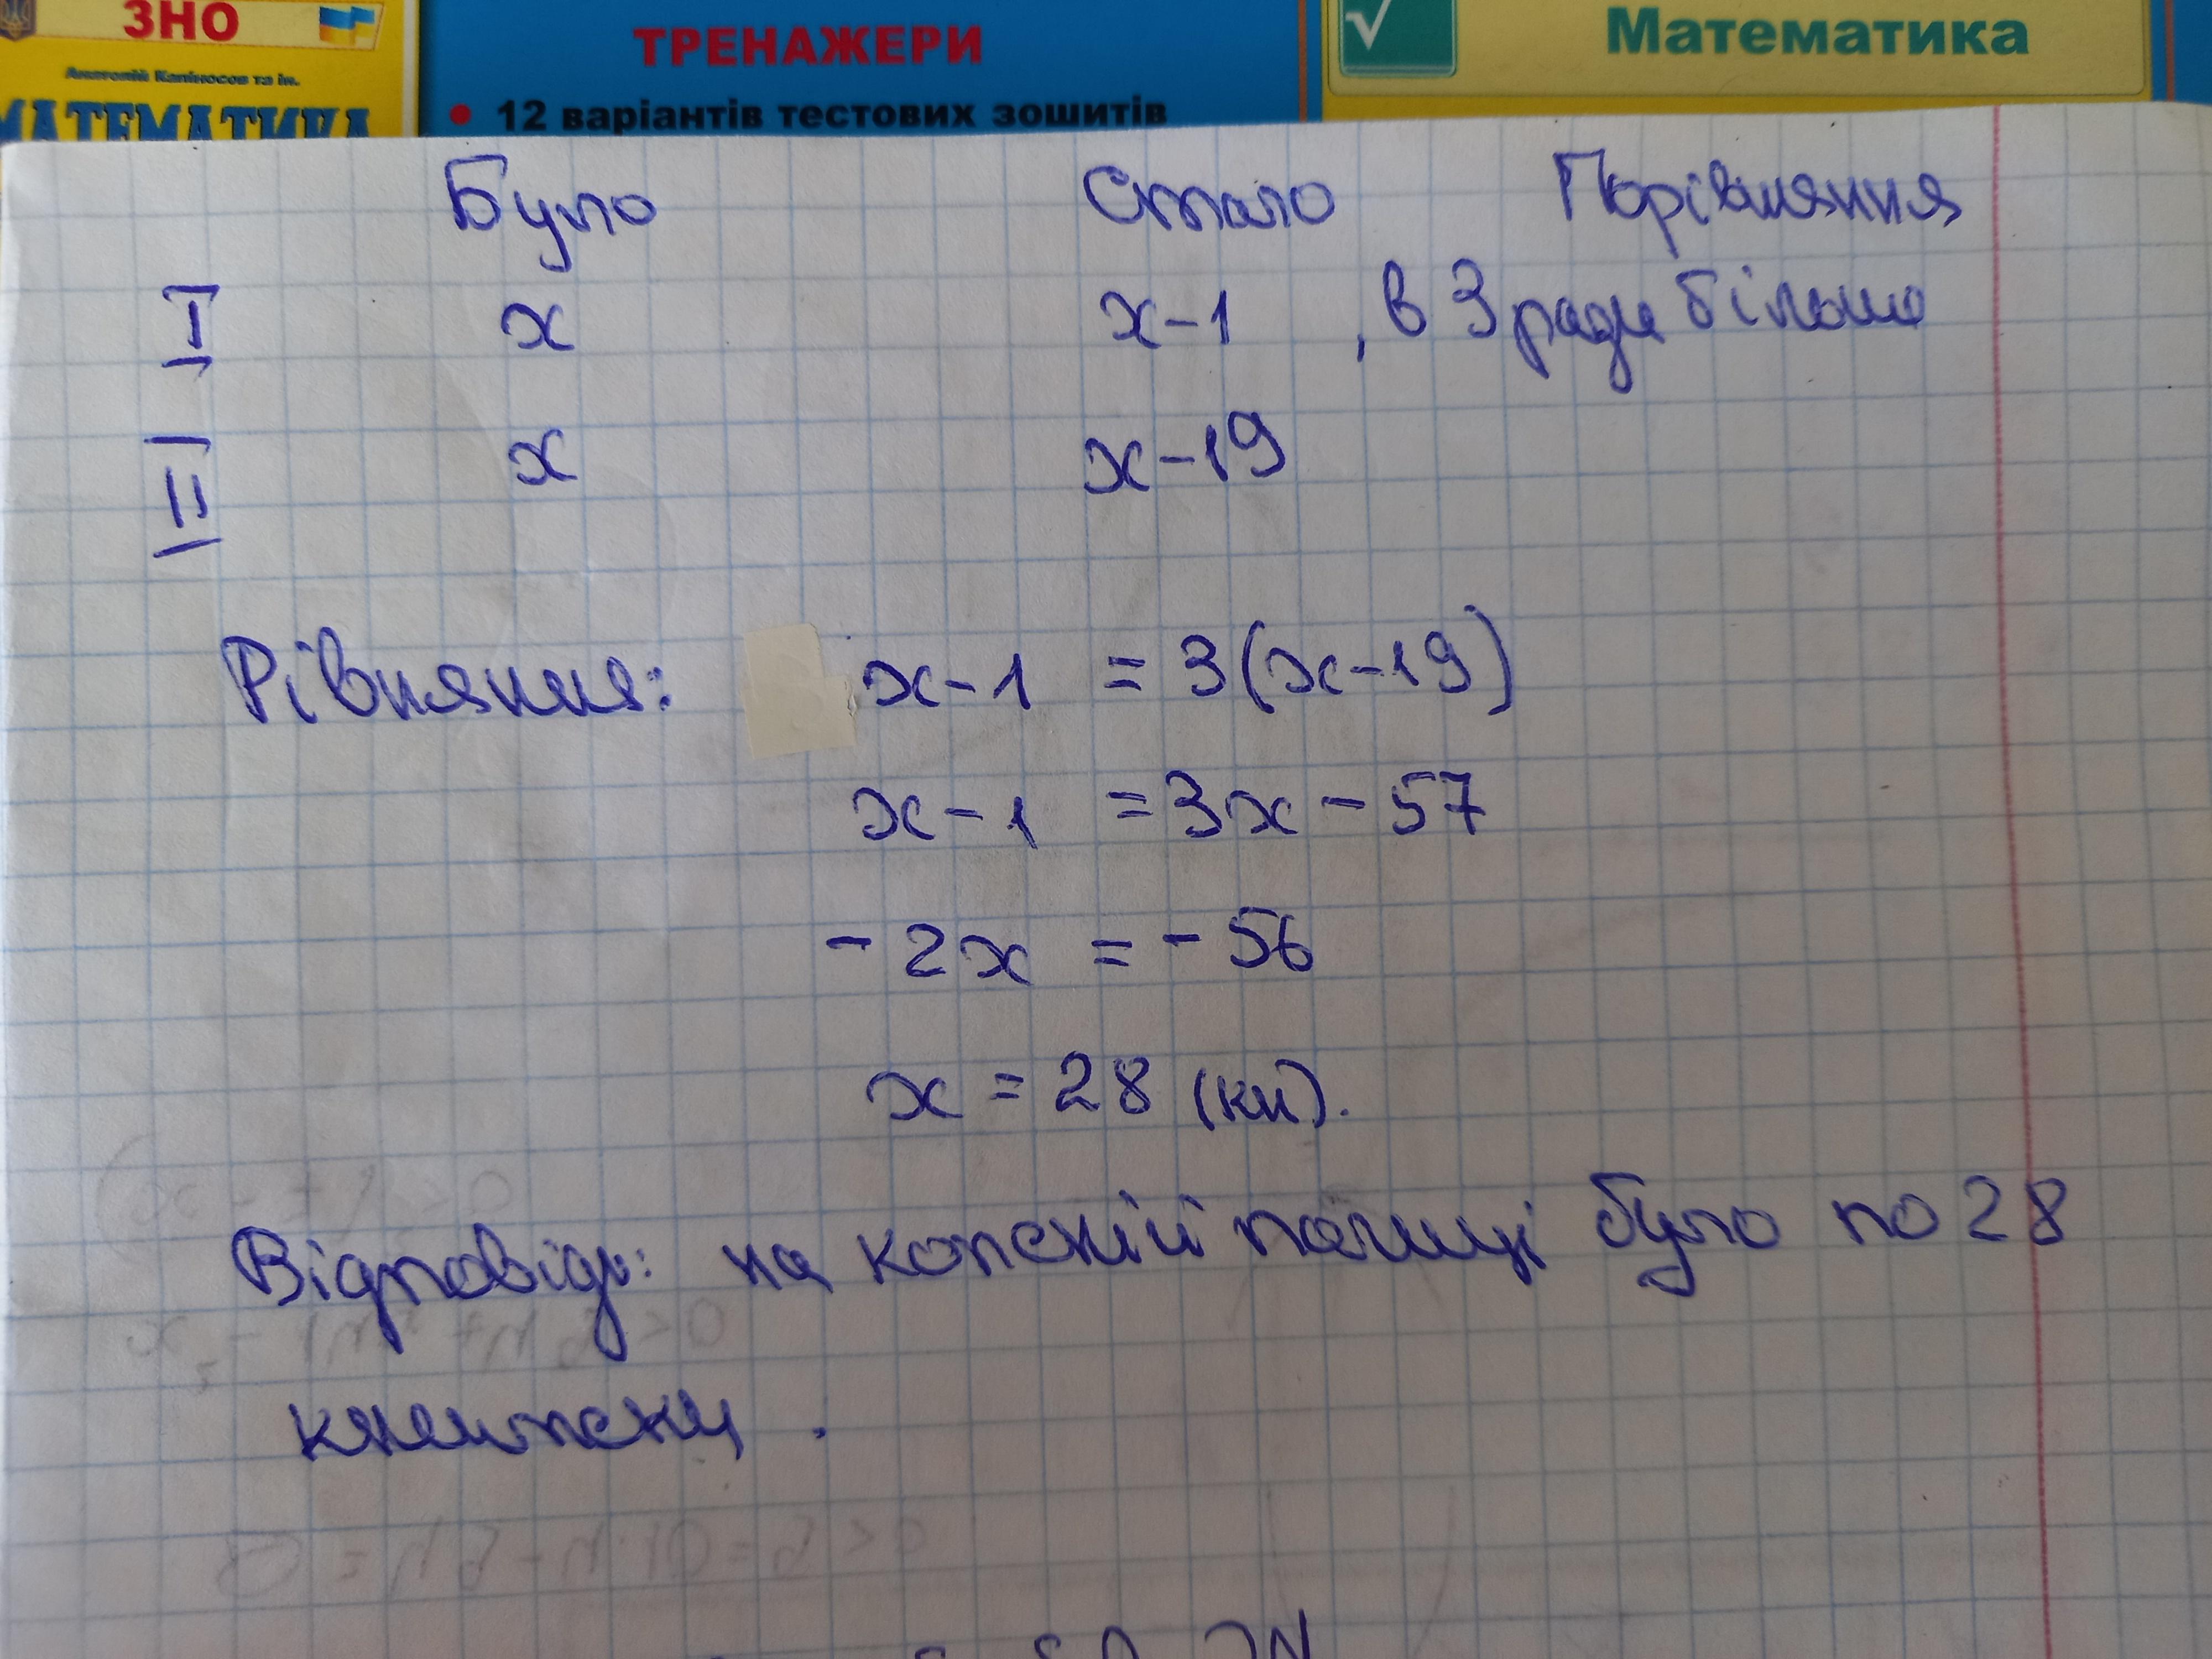 ЗНО
Анатолій Капіносов та ін.
МАТЕМАТИКА
ТРЕНАЖЕРИ
• 12 варіантів тестових зошитів
Математика
Було Стало Порівняння
I x x-1 , в 3 рази більше
II x x-19
Рівняння: x-1 = 3(x-19)
x-1 = 3x-57
-2x = -56
x = 28 (кн).
Відповідь: на кожній полиці було по 28
книжки.